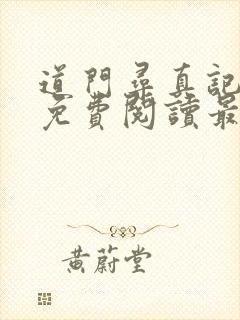 道門尋真記
免費閱讀最
黃蔚堂